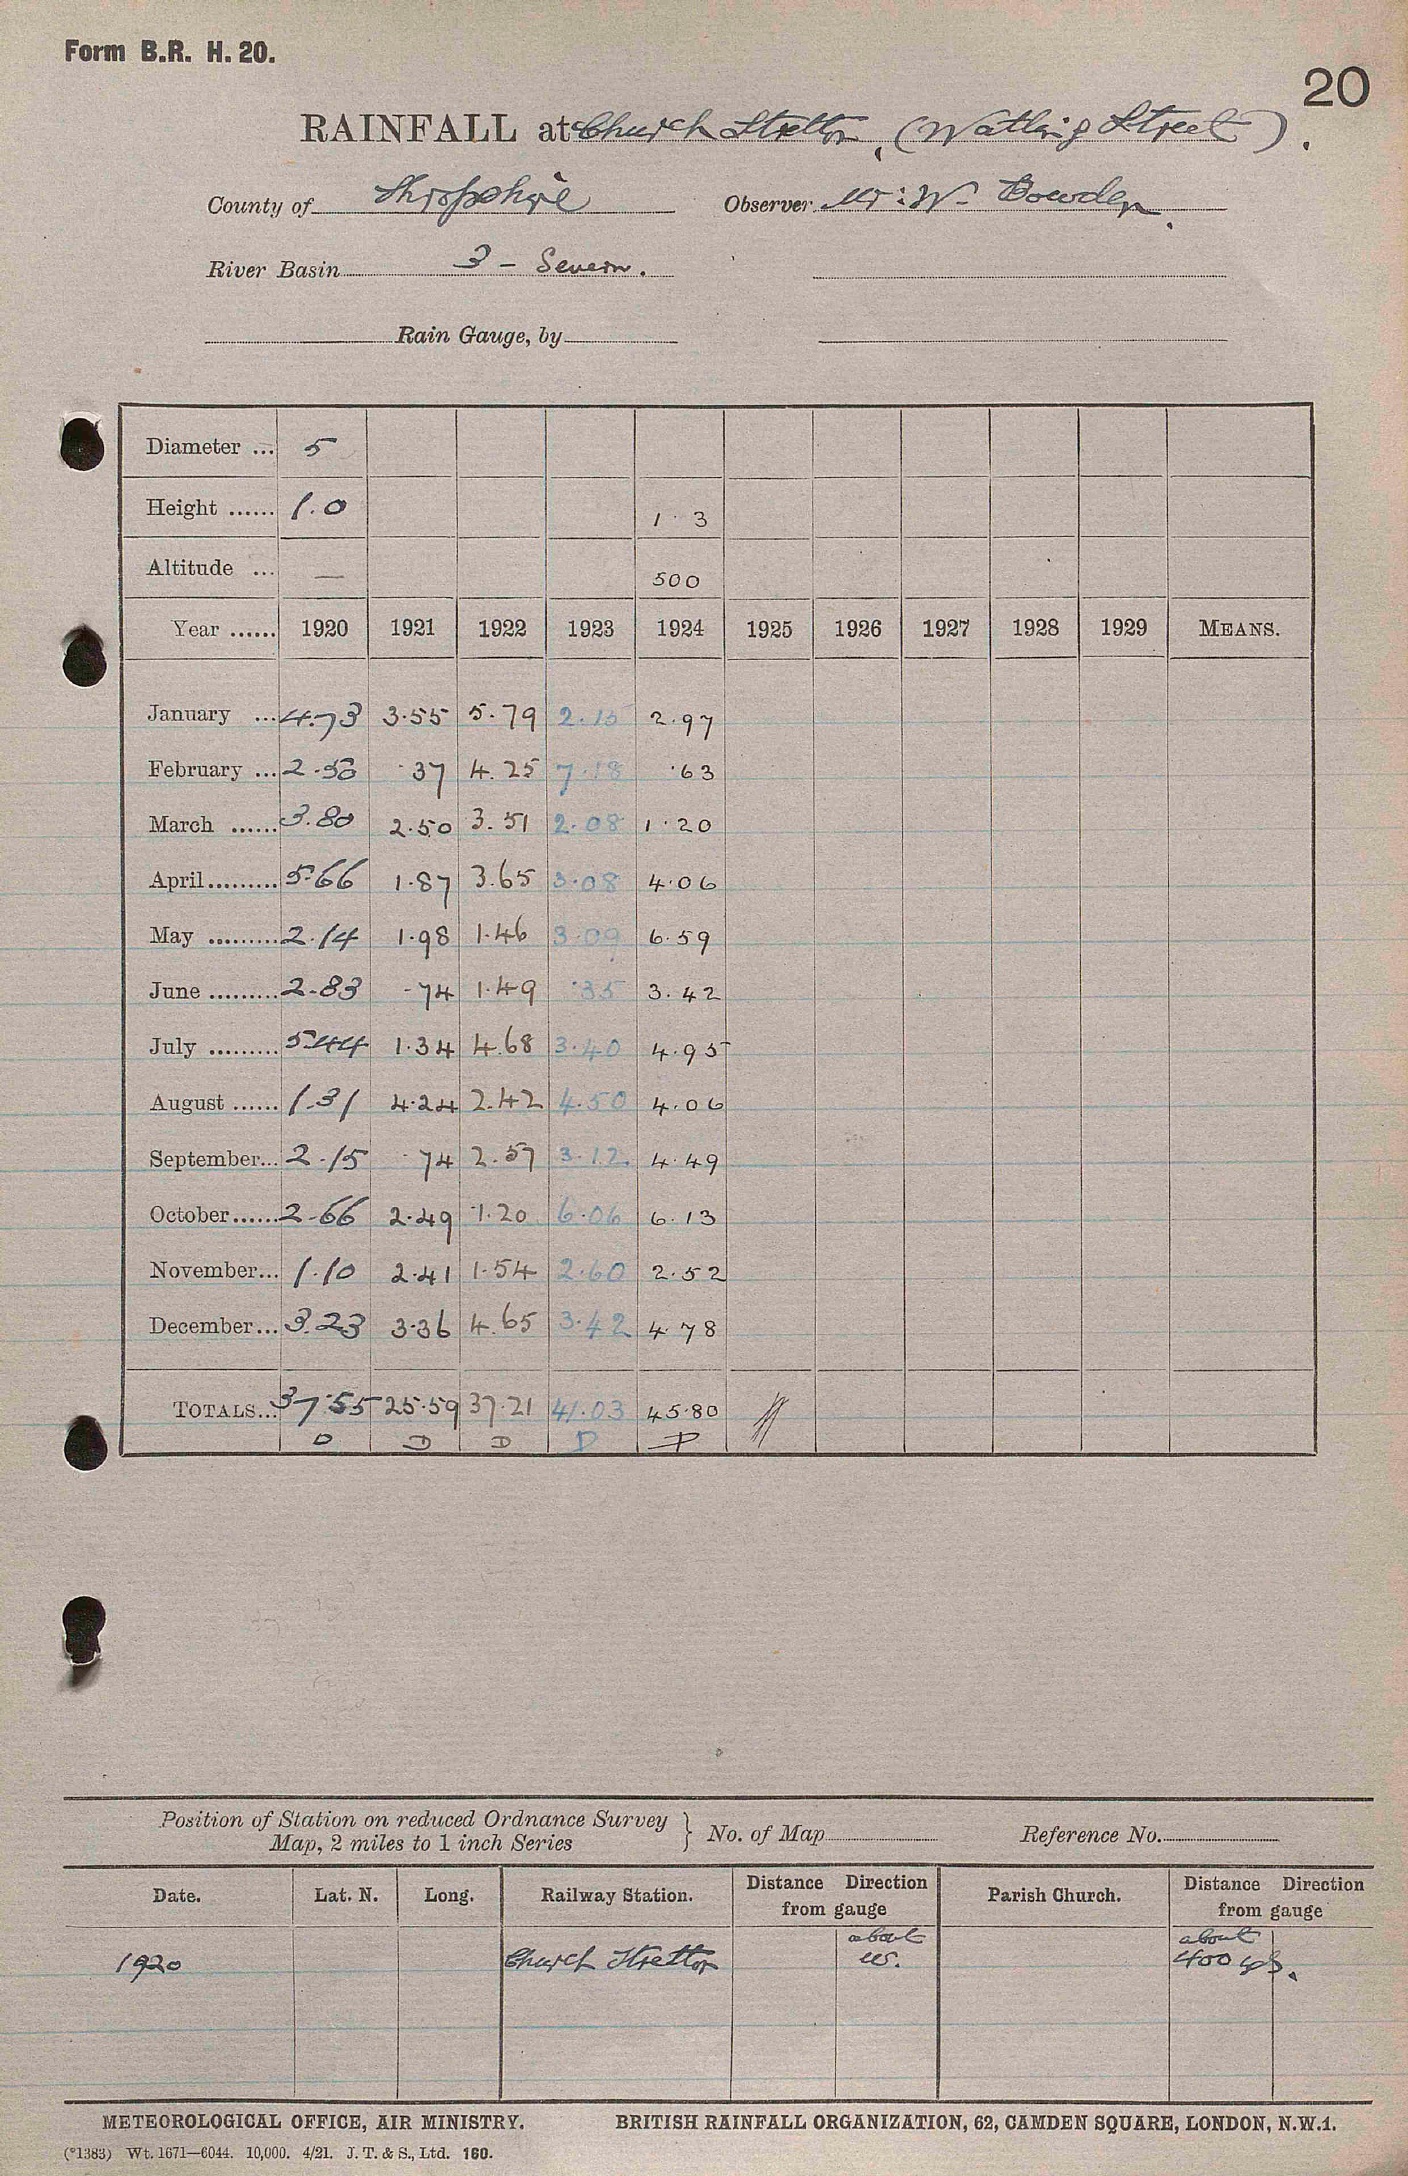 Form B.R. H. 20.
20
RAINFALL at Church Stretton, (Watling Street).
County of Shropshire Observer Mr. W. Bowden.
River Basin 3 - Severn.
Rain Gauge, by
Diameter ... 5
Height ...... 1.0 1 3
Altitude ... — 500
Year ...... 1920 1921 1922 1923 1924 1925 1926 1927 1928 1929 MEANS.
January ... 4.73 3.55 5.79 2.15 2.97
February ... 2.50 .37 4.25 7.18 .63
March ...... 3.80 2.50 3.51 2.08 1.20
April ......... 5.66 1.87 3.65 3.08 4.06
May ......... 2.14 1.98 1.46 3.09 6.59
June ......... 2.83 .74 1.49 .35 3.42
July ......... 5.44 1.34 4.68 3.40 4.95
August ...... 1.31 4.24 2.42 4.50 4.06
September... 2.15 .74 2.57 3.12 4.49
October...... 2.66 2.49 1.20 6.06 6.13
November... 1.10 2.41 1.54 2.60 2.52
December... 3.23 3.36 4.65 3.42 4.78
TOTALS... 37.55 25.59 37.21 41.03 45.80
D D D D
Position of Station on reduced Ordnance Survey
Map, 2 miles to 1 inch Series } No. of Map Reference No.
Date. Lat. N. Long. Railway Station. Distance Direction from gauge Parish Church. Distance Direction from gauge
about about
1920 Church Stretton W. 400 yds.
METEOROLOGICAL OFFICE, AIR MINISTRY. BRITISH RAINFALL ORGANIZATION, 62, CAMDEN SQUARE, LONDON, N.W.1.
(*1383) Wt. 1671—6044. 10,000. 4/21. J. T. & S., Ltd. 160.